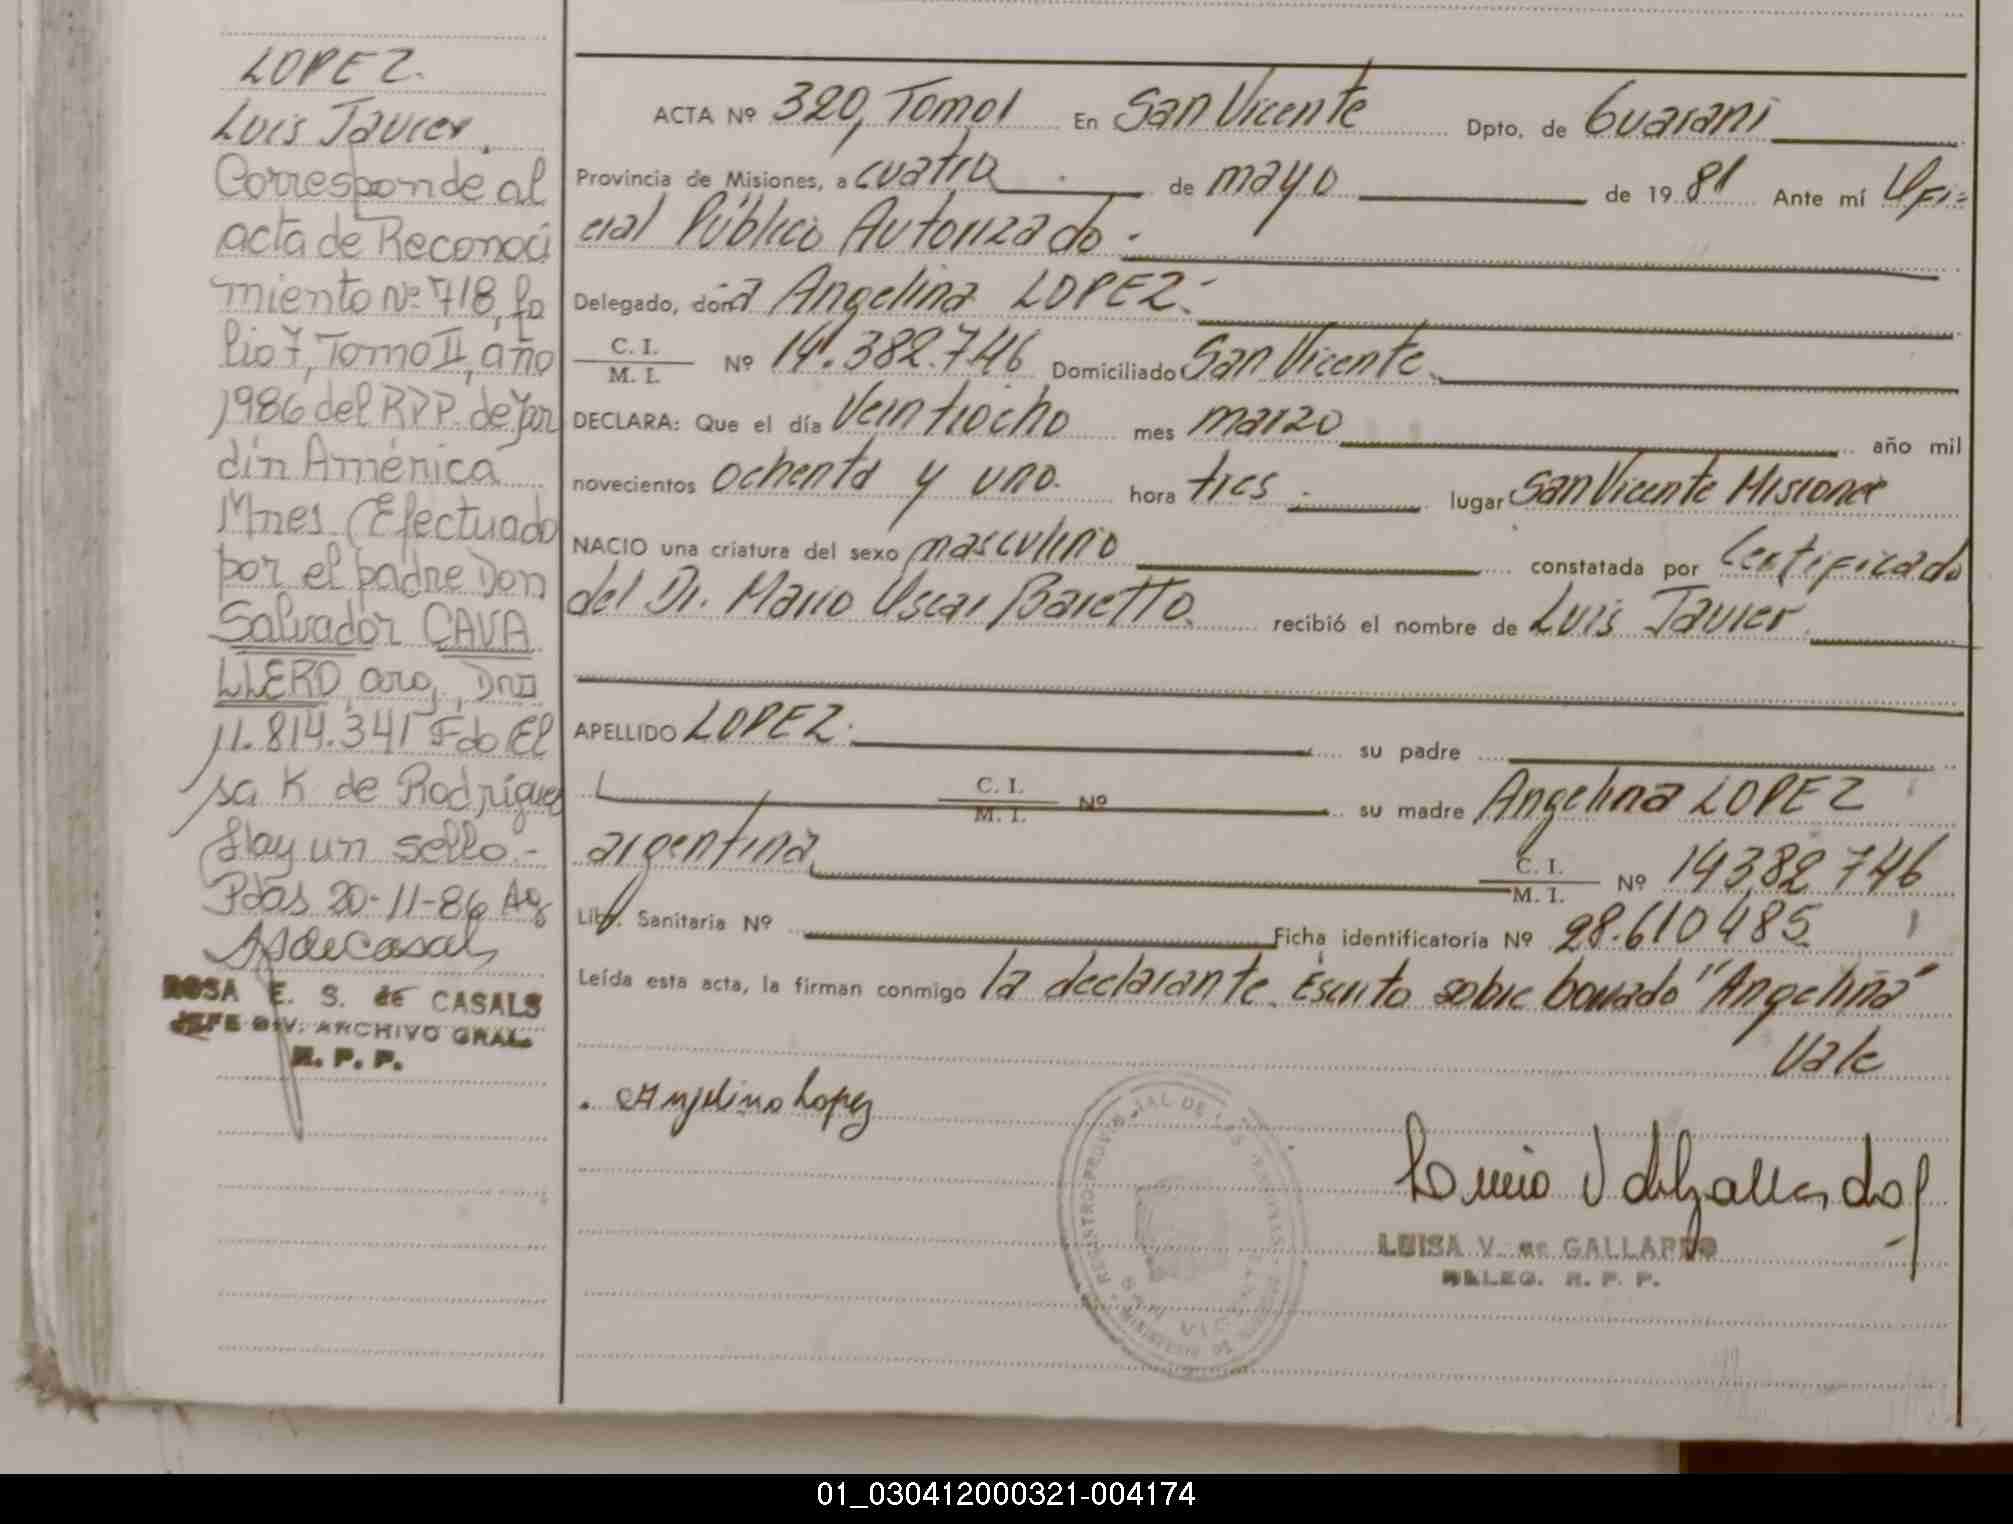 LOPEZ.
Luis Javier.
Corresponde al
acta de Reconoci
miento Nº 718, fo
lio 7, Tomo II, año
1986 del RPP. de Jar
din América
Mnes (Efectuado
por el padre Don
Salvador CAVA
LLERO, arg., DNI
11.814.341 Fdo El
sa K de Rodríguez
Hay un sello.-
Pdas 20-11-86
ROSA E. S. de CASALS
JEFE DIV. ARCHIVO GRAL.
R. P. P.
ACTA Nº 320, Tomo I En San Vicente Dpto. de Guarani
Provincia de Misiones, a cuatro de mayo de 1981 Ante mí Ofi=
cial Público Autorizado.-
Delegado, doña Angelina LOPEZ.-
C. I.
M. I. Nº 14.382.746 Domiciliado San Vicente
DECLARA: Que el día Veintiocho mes marzo año mil
novecientos ochenta y uno. hora tres. lugar San Vicente Misiones
NACIO una criatura del sexo masculino constatada por Certificado
del Dr. Mario Oscar Baretto. recibió el nombre de Luis Javier
APELLIDO LOPEZ. su padre
C. I.
M. I. Nº su madre Angelina LOPEZ
argentina C. I.
M. I. Nº 14382746
Libr. Sanitaria Nº Ficha identificatoria Nº 28.610485
Leída esta acta, la firman conmigo la declarante. Escrito sobre borrado "Angelina"
Vale
Anjelina Lopez
LUISA V. de GALLARDO
DELEG. R. P. P.
SAN VICENTE
01_030412000321-004174